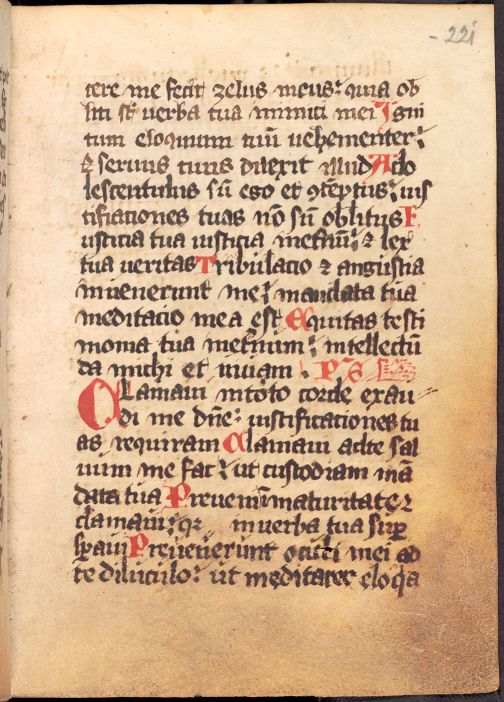 - 221
tere me fecit zelus meus: quia ob
liti st̄ verba tua inimici mei Igni
tum eloquium tuū vehementer:
⁊ servus tuus dilexit illud Ado
lescentulus sū ego et ꝯtēptus: ius
tificationes tuas nō sū oblitus I
usticia tua iusticia in eternū: ⁊ lex
tua veritas Tribulacio ⁊ angustia
invenerunt me: mandata tua
meditacio mea est Equitas testi
monia tua in eternum: intellectū
da michi et vivam. pˢ
Clamavi in toto corde exau
di me dn̄e: iustificationes tu
as requiram Clamavi ad te sal
vum me fac: ut custodiam mā
data tua Preveni in maturitate ⁊
clamavi: qꝛ in verba tua suꝑ
sp̄avi Prevenerunt oculi mei ad
te diluculo: ut meditarer eloq̄a